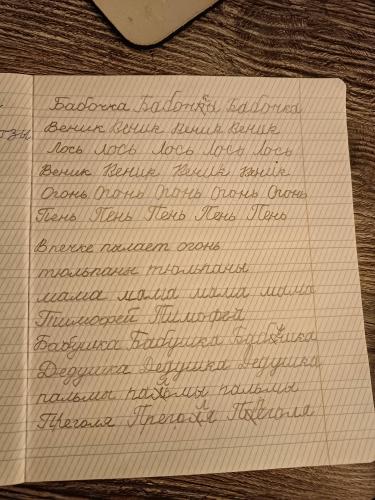 Бабочка Бабочки Бабочка
Веник Веник Веник Веник
Лось Лось Лось Лось Лось
Веник Веник Веник Веник
Огонь Огонь Огонь Огонь Огонь
Пень Пень Пень Пень Пень
В печке пылает огонь
тюльпаны тюльпаны
мама мама мама мама мама
Тимофей Тимофей
Бабушка Бабушка Бабушка
Дедушка Дедушка Дедушка
пальмы пальмы пальмы
Преголя Преголя Преголя